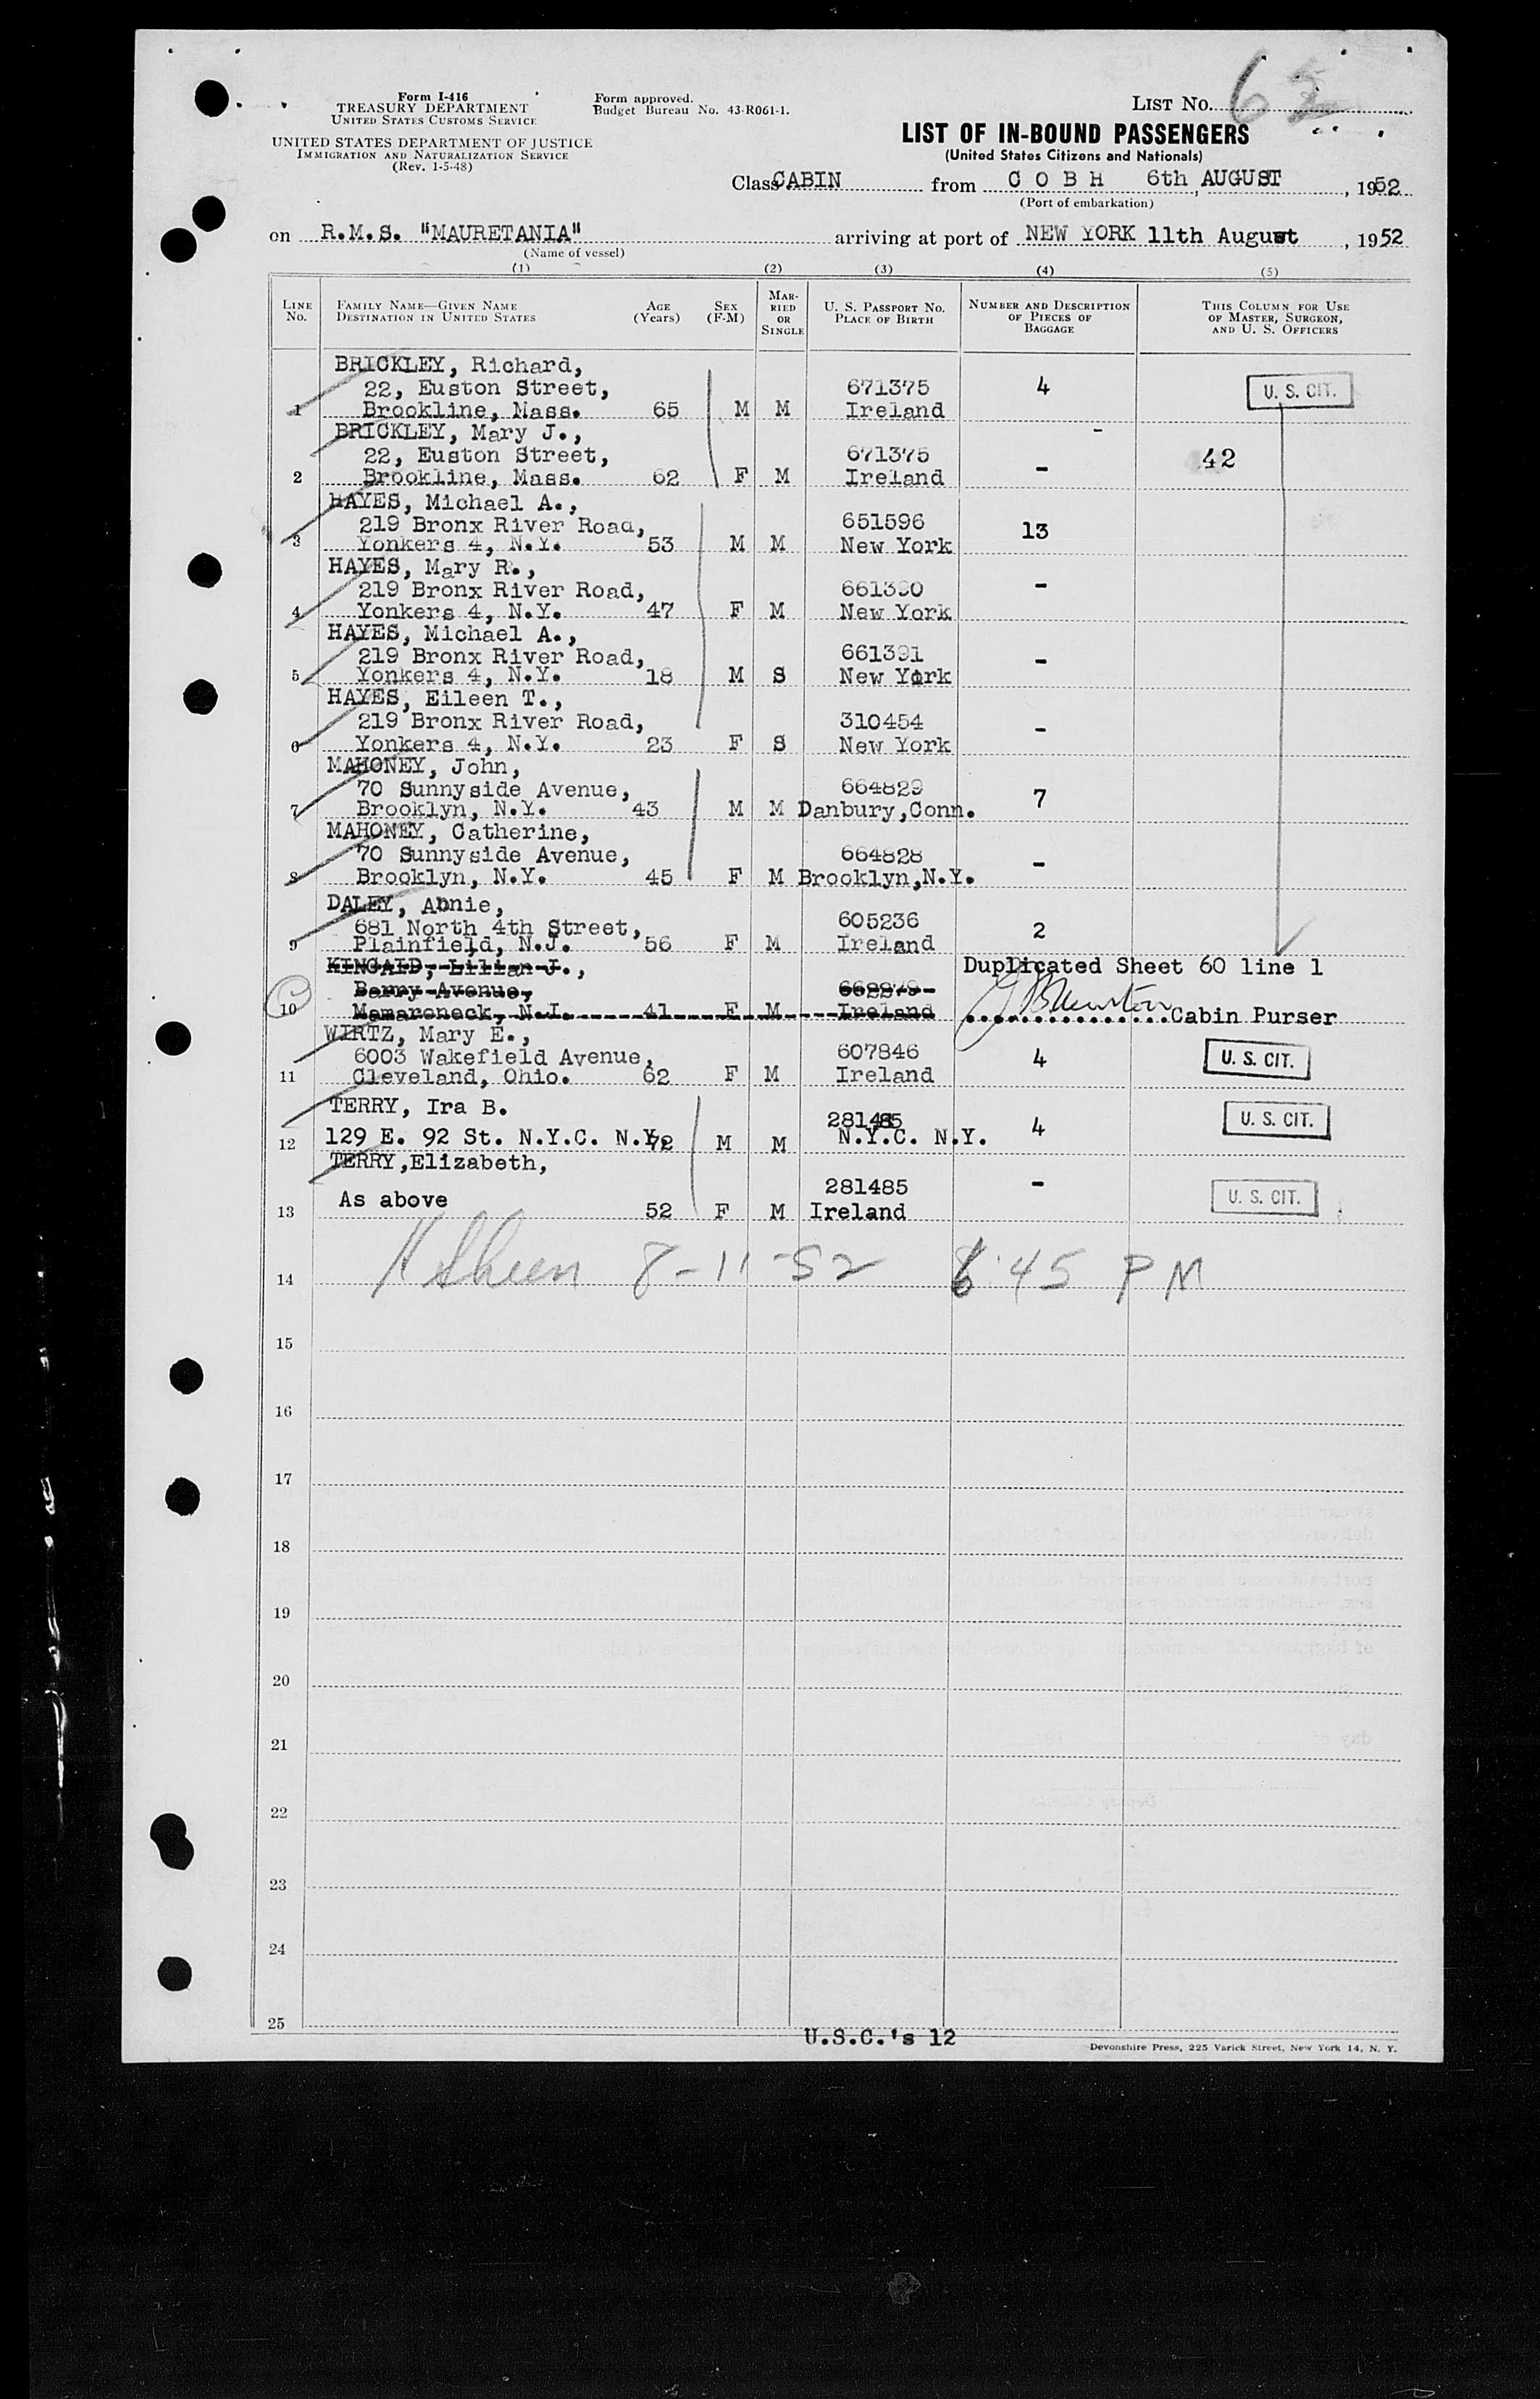 Form I-416
TREASURY DEPARTMENT
UNITED STATES CUSTOMS SERVICE
UNITED STATES DEPARTMENT OF JUSTICE
IMMIGRATION AND NATURALIZATION SERVICE
(Rev. 1-5-48)
Form approved.
Budget Bureau No. 43-R061-1.
LIST No. 62
LIST OF IN-BOUND PASSENGERS
(United States Citizens and Nationals)
Class CABIN from C O B H 6th, AUGUST, 1952
(Port of embarkation)
on R.M.S. "MAURETANIA" arriving at port of NEW YORK 11th August, 1952
(Name of vessel)
(1) (2) (3) (4) (5)
LINE No. FAMILY NAME—GIVEN NAME DESTINATION IN UNITED STATES AGE (Years) SEX (F-M) MARRIED OR SINGLE U. S. PASSPORT No. PLACE OF BIRTH NUMBER AND DESCRIPTION OF PIECES OF BAGGAGE THIS COLUMN FOR USE OF MASTER, SURGEON, AND U. S. OFFICERS
BRICKLEY, Richard,
22, Euston Street, 671375 4 U. S. CIT.
1 Brookline, Mass. 65 M M Ireland
BRICKLEY, Mary J., -
22, Euston Street, 671375 42
2 Brookline, Mass. 62 F M Ireland -
HAYES, Michael A.,
219 Bronx River Road, 651596 13
3 Yonkers 4, N.Y. 53 M M New York
HAYES, Mary R.,
219 Bronx River Road, 661390 -
4 Yonkers 4, N.Y. 47 F M New York
HAYES, Michael A.,
219 Bronx River Road, 661391 -
5 Yonkers 4, N.Y. 18 M S New York
HAYES, Eileen T.,
219 Bronx River Road, 310454 -
6 Yonkers 4, N.Y. 23 F S New York
MAHONEY, John,
70 Sunnyside Avenue, 664829 7
7 Brooklyn, N.Y. 43 M M Danbury,Conn.
MAHONEY, Catherine,
70 Sunnyside Avenue, 664828 -
8 Brooklyn, N.Y. 45 F M Brooklyn,N.Y.
DALEY, Annie,
681 North 4th Street, 605236 2
9 Plainfield, N.J. 56 F M Ireland
Lilian J., Duplicated Sheet 60 line 1
Avenue,
10 Mamaroneck, N.J. 41 F M Ireland Cabin Purser
WIRTZ, Mary E.,
6003 Wakefield Avenue, 607846 4 U. S. CIT.
11 Cleveland, Ohio. 62 F M Ireland
TERRY, Ira B. 281485 4 U. S. CIT.
12 129 E. 92 St. N.Y.C. N.Y. 72 M M N.Y.C. N.Y.
TERRY,Elizabeth,
281485 - U. S. CIT.
13 As above 52 F M Ireland
14 H Sheen 8-11-52 6:45 PM
15
16
17
18
19
20
21
22
23
24
25
U.S.C.'s 12
Devonshire Press, 225 Varick Street, New York 14, N. Y.